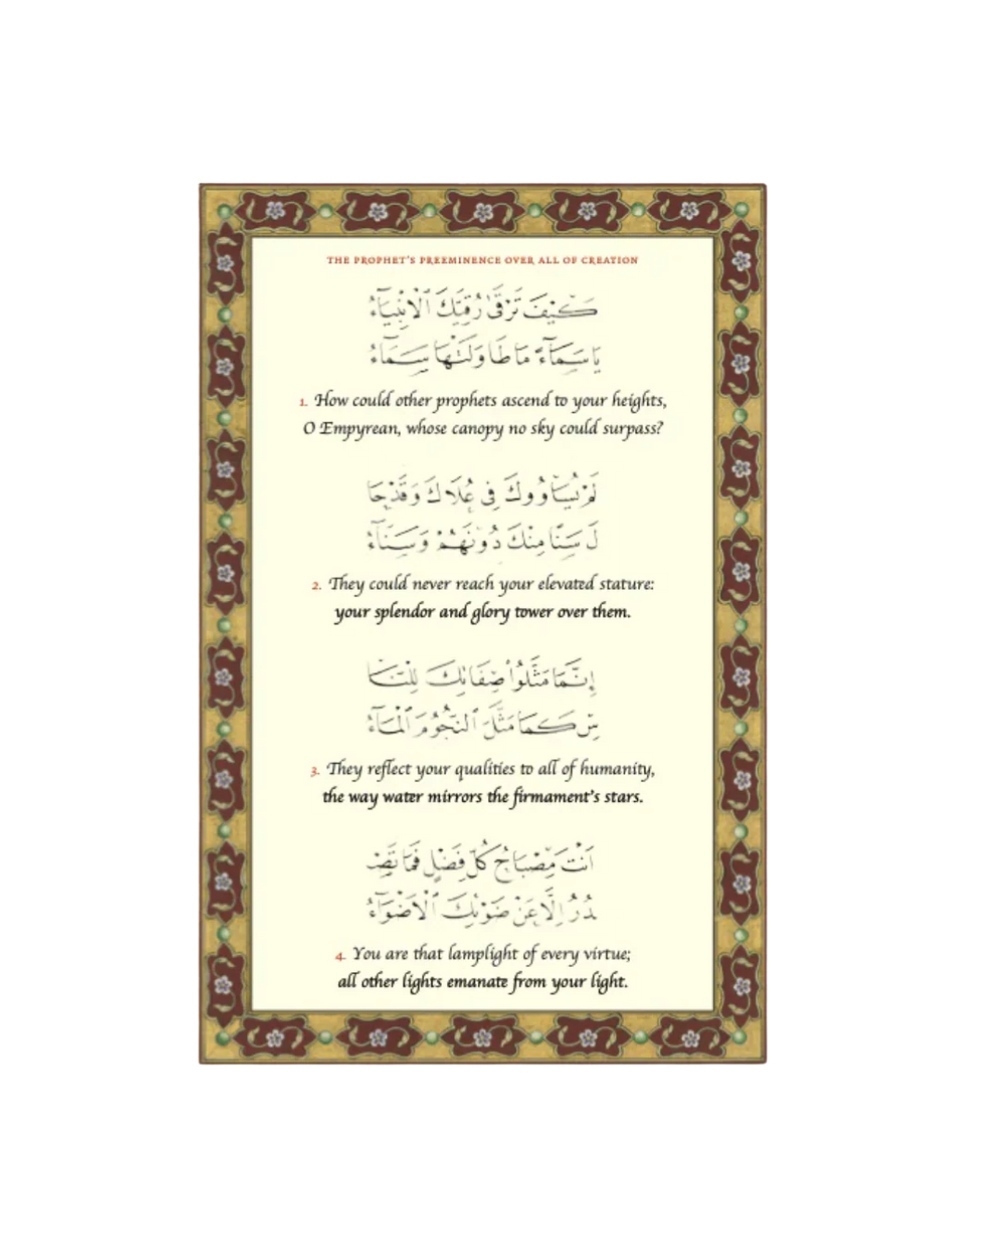 THE PROPHET'S PREEMINENCE OVER ALL OF CREATION
كَيْفَ تَرْقَىٰ رُقِيَّكَ ٱلْأَنْبِيَآءُ
يَا سَمَآءً مَا طَاوَلَتْهَا سَمَآءُ
1. How could other prophets ascend to your heights,
O Empyrean, whose canopy no sky could surpass?
لَمْ يُسَاوُوكَ فِي عُلَاكَ وَقَدْ حَا
لَ سَنًا مِنْكَ دُونَهُمْ وَسَنَآءُ
2. They could never reach your elevated stature:
your splendor and glory tower over them.
إِنَّمَا مَثَّلُوا۟ صِفَاتِكَ لِلنَّا
سِ كَمَا مَثَّلَ ٱلنُّجُومَ ٱلْمَآءُ
3. They reflect your qualities to all of humanity,
the way water mirrors the firmament's stars.
أَنْتَ مِصْبَاحُ كُلِّ فَضْلٍ فَمَا تَصْ
دُرُ إِلَّا عَنْ ضَوْئِكَ ٱلْأَضْوَآءُ
4. You are that lamplight of every virtue;
all other lights emanate from your light.